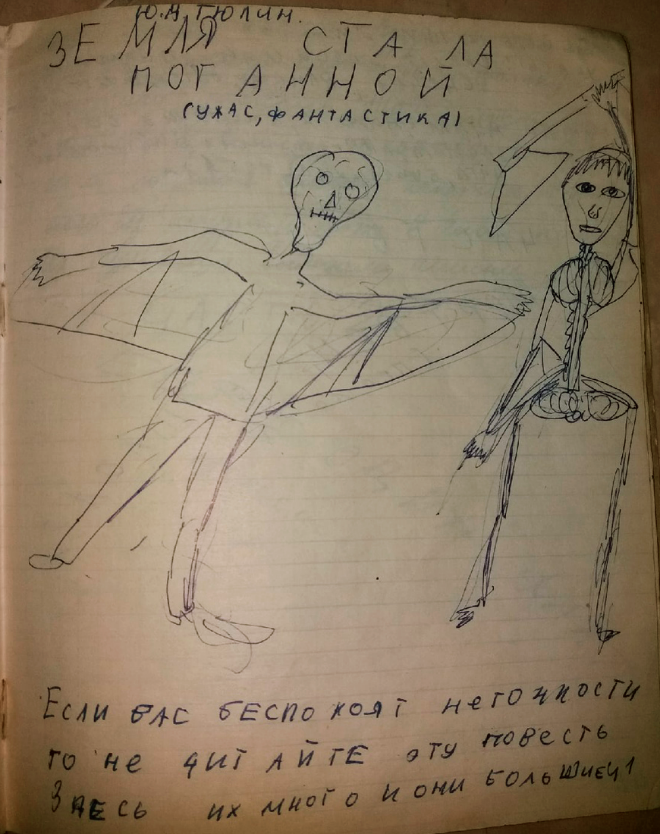 Ю.А.ТЮЛИН.
ЗЕМЛЯ СТАЛА
ПОГАННОЙ
(УЖАС, ФАНТАСТИКА)
ЕСЛИ ВАС БЕСПОКОЯТ НЕТОЧНОСТИ
ТО НЕ ЧИТАЙТЕ ЭТУ ПОВЕСТЬ
ЗДЕСЬ ИХ МНОГО И ОНИ